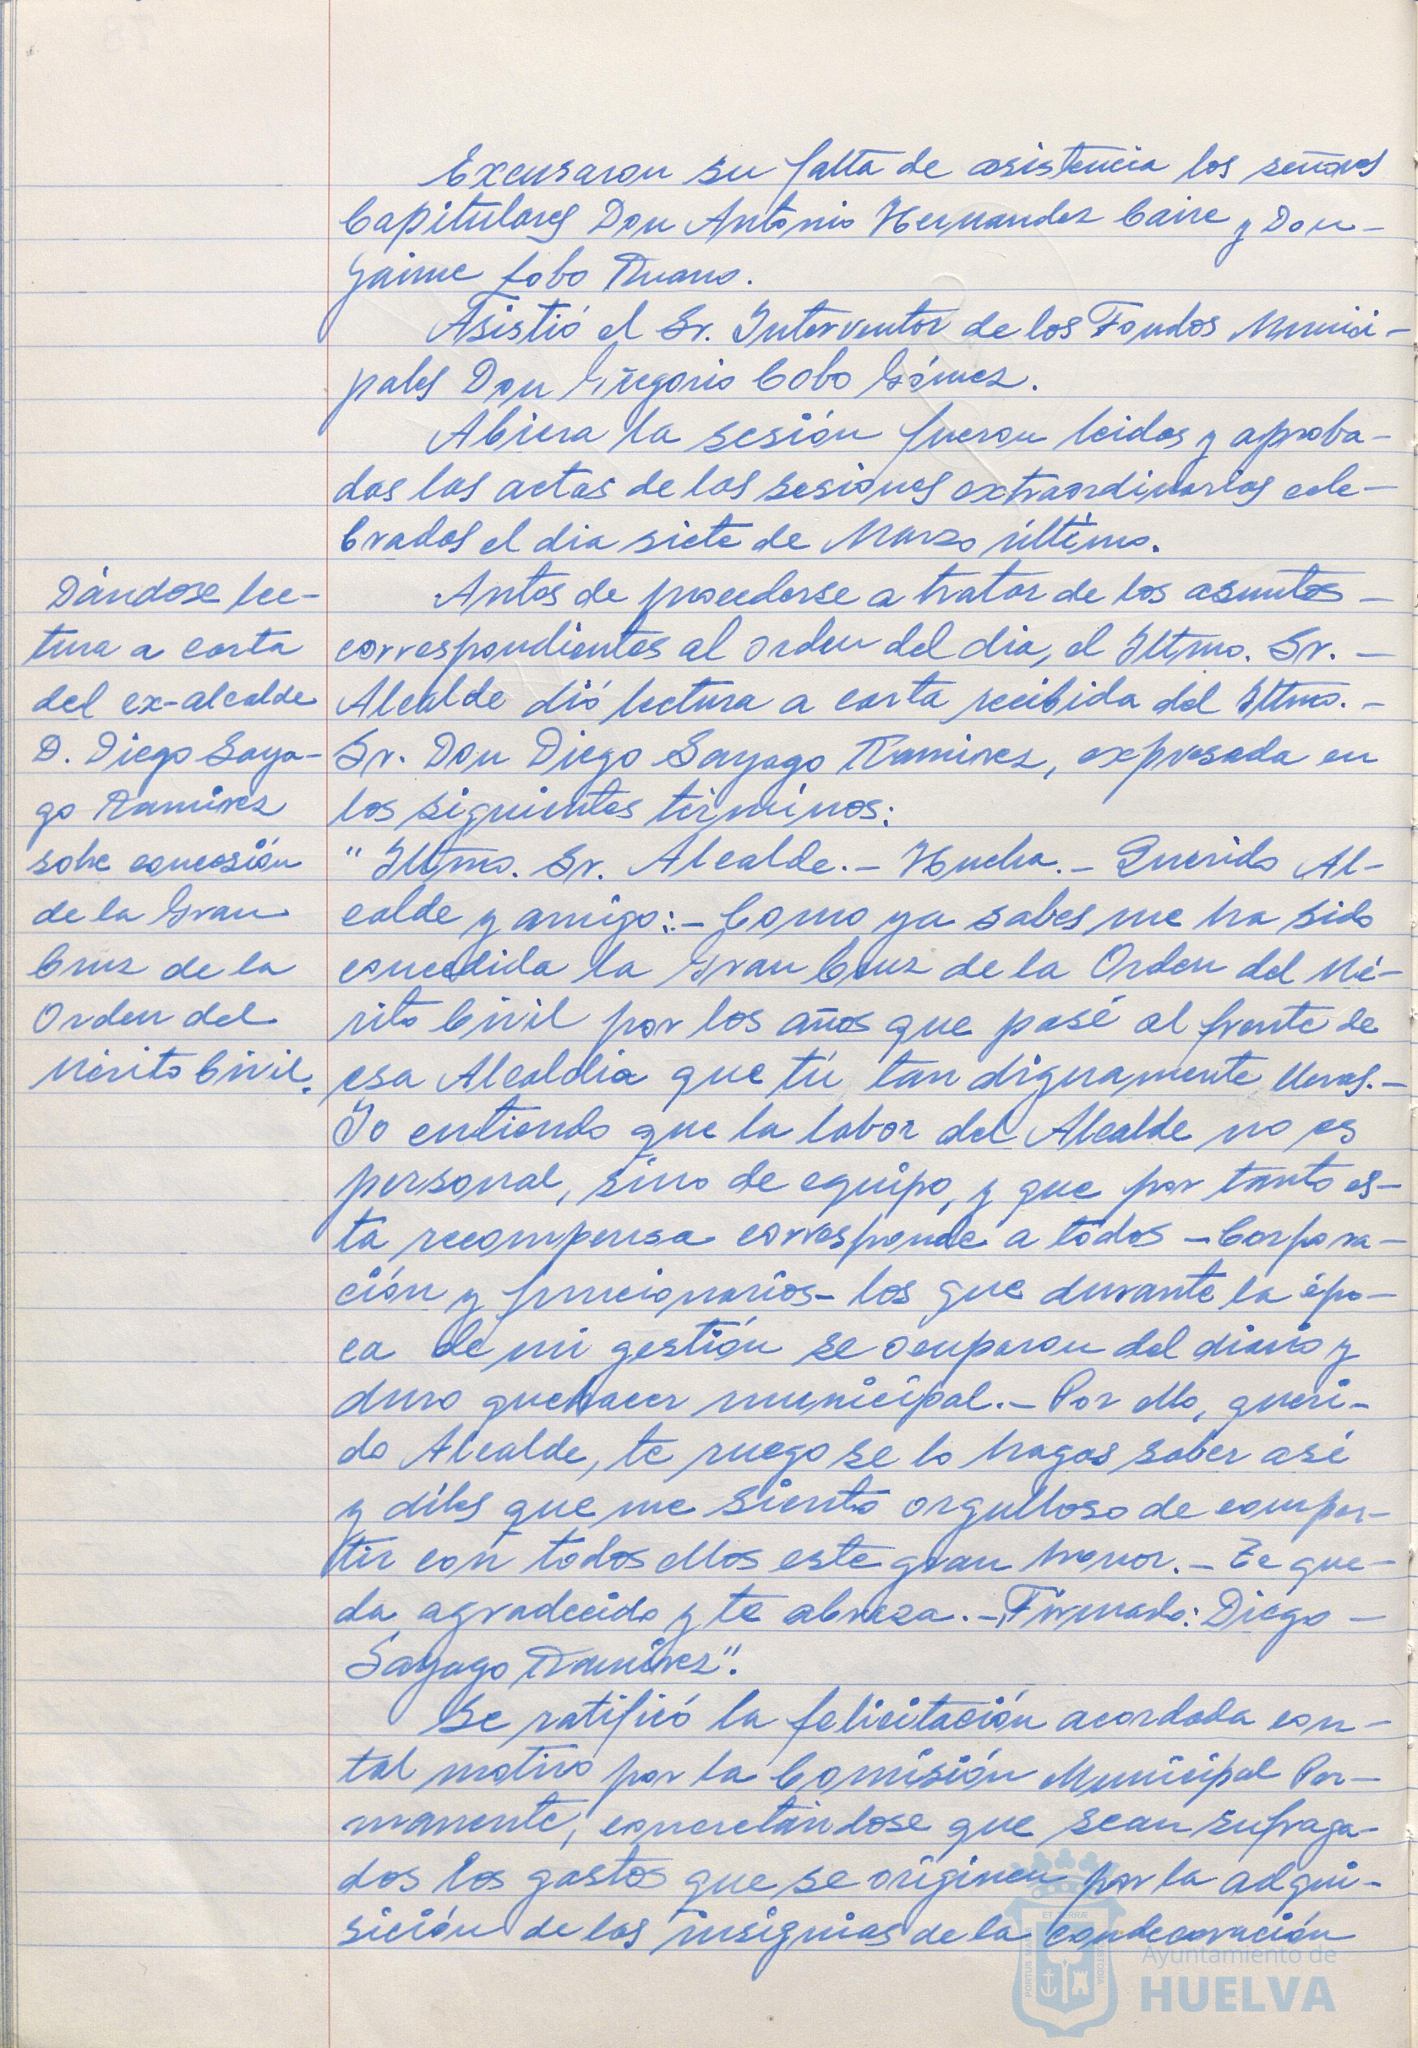 Excusaron su falta de asistencia los señores
Capitulares Don Antonio Hernandez Caire y Don
Jaime Lobo Ruano.
Asistió el Sr. Interventor de los Fondos Munici-
pales Don Gregorio Cobo Gómez.
Abiera la sesión fueron leidas y aproba-
das las actas de las sesiones extraordinarias cele-
bradas el dia siete de Marzo último.
Dándose lec-
tura a carta
del ex-alcalde
D. Diego Saya-
go Ramirez
sobre concesión
de la Gran
Cruz de la
Orden del
Mérito Civil.
Antes de procederse a tratar de los asuntos
correspondientes al orden del dia, el Iltmo. Sr.
Alcalde dió lectura a carta recibida del Iltmo.
Sr. Don Diego Sayago Ramirez, expresada en
los siguientes términos:
"Iltmo. Sr. Alcalde.- Huelva.- Querido Al-
calde y amigo:.- Como ya sabes me ha sido
concedida la Gran Cruz de la Orden del Mé-
rito Civil por los años que pasé al frente de
esa Alcaldia que tú tan dignamente llevas.-
Yo entiendo que la labor del Alcalde no es
personal, sino de equipo, y que por tanto es-
ta recompensa corresponde a todos - Corpora-
ción y funcionarios - los que durante la épo-
ca de mi gestión se ocuparon del diario y
duro quehacer municipal.- Por ello, queri-
do Alcalde, te ruego se lo hagas saber así
y diles que me siento orgulloso de compar-
tir con todos ellos este gran honor.- Te que-
da agradecido y te abraza.- Firmado: Diego
Sayago Ramirez".
Se ratificó la felicitación acordada con
tal motivo por la Comisión Municipal Per-
manente, concretándose que sean sufraga-
dos los gastos que se originen por la adqui-
sición de las insignias de la condecoración
Ayuntamiento de
HUELVA